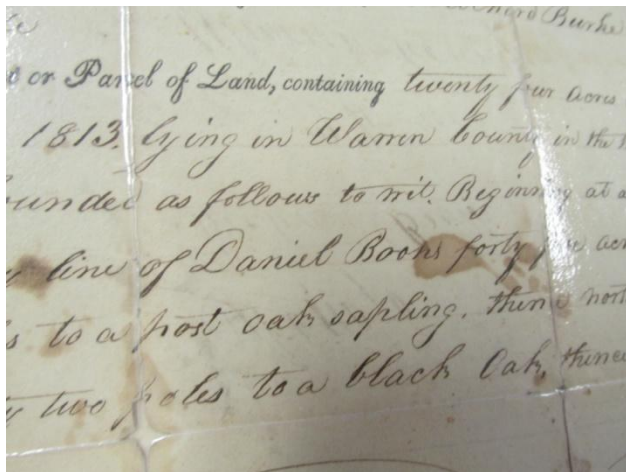 Burke
or Parcel of Land, containing twenty four acres
1813. lying in Warren County in the
ounded as follows to wit. Beginning at a
line of Daniel Books forty five acr
s to a post oak sapling. thence nort
ty two poles to a black Oak, thence